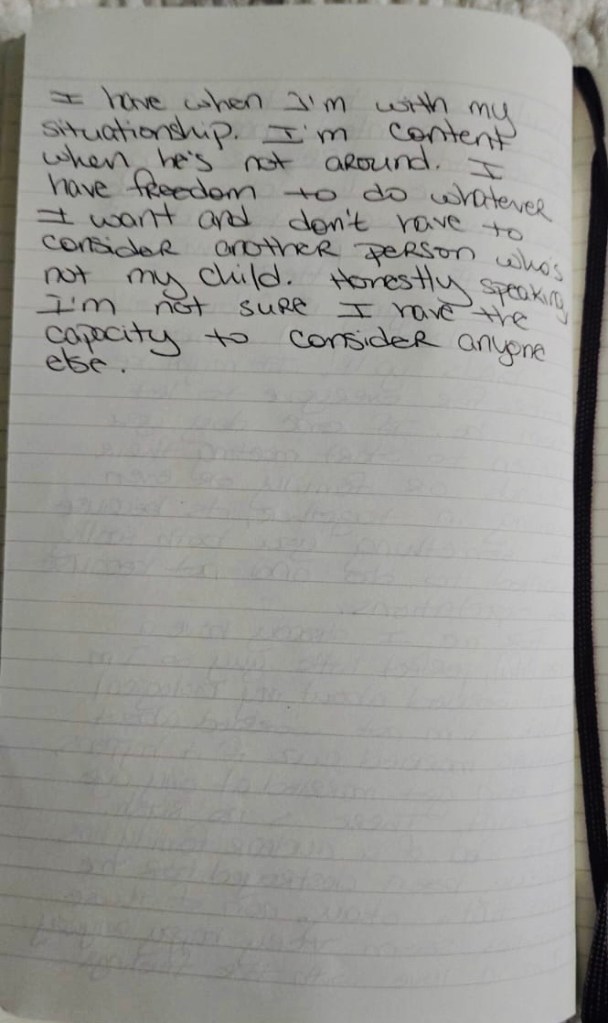 I have when I'm with my
situationship. I'm content
when he's not around. I
have freedom to do whatever
I want and don't have to
consider another person who's
not my child. Honestly speaking
I'm not sure I have the
capacity to consider anyone
else.